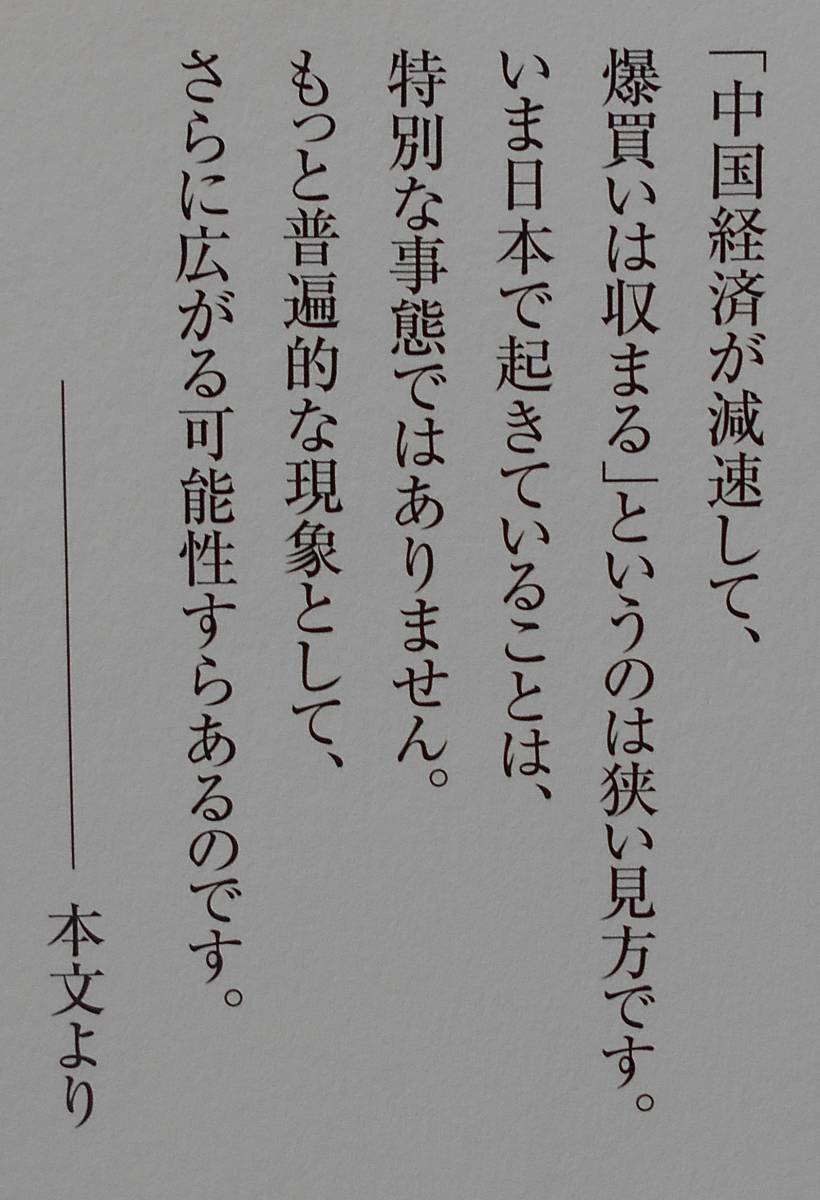 「中国経済が減速して、
爆買いは収まる」というのは狭い見方です。
いま日本で起きていることは、
特別な事態ではありません。
もっと普遍的な現象として、
さらに広がる可能性すらあるのです。
――本文より